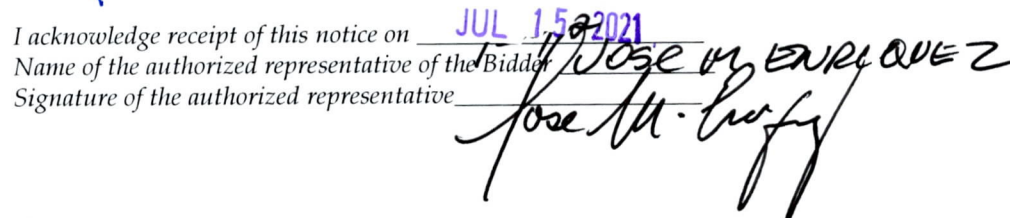 I acknowledge receipt of this notice on JUL 15 2021
Name of the authorized representative of the Bidder JOSE M ENRIQUEZ
Signature of the authorized representative Jose M.